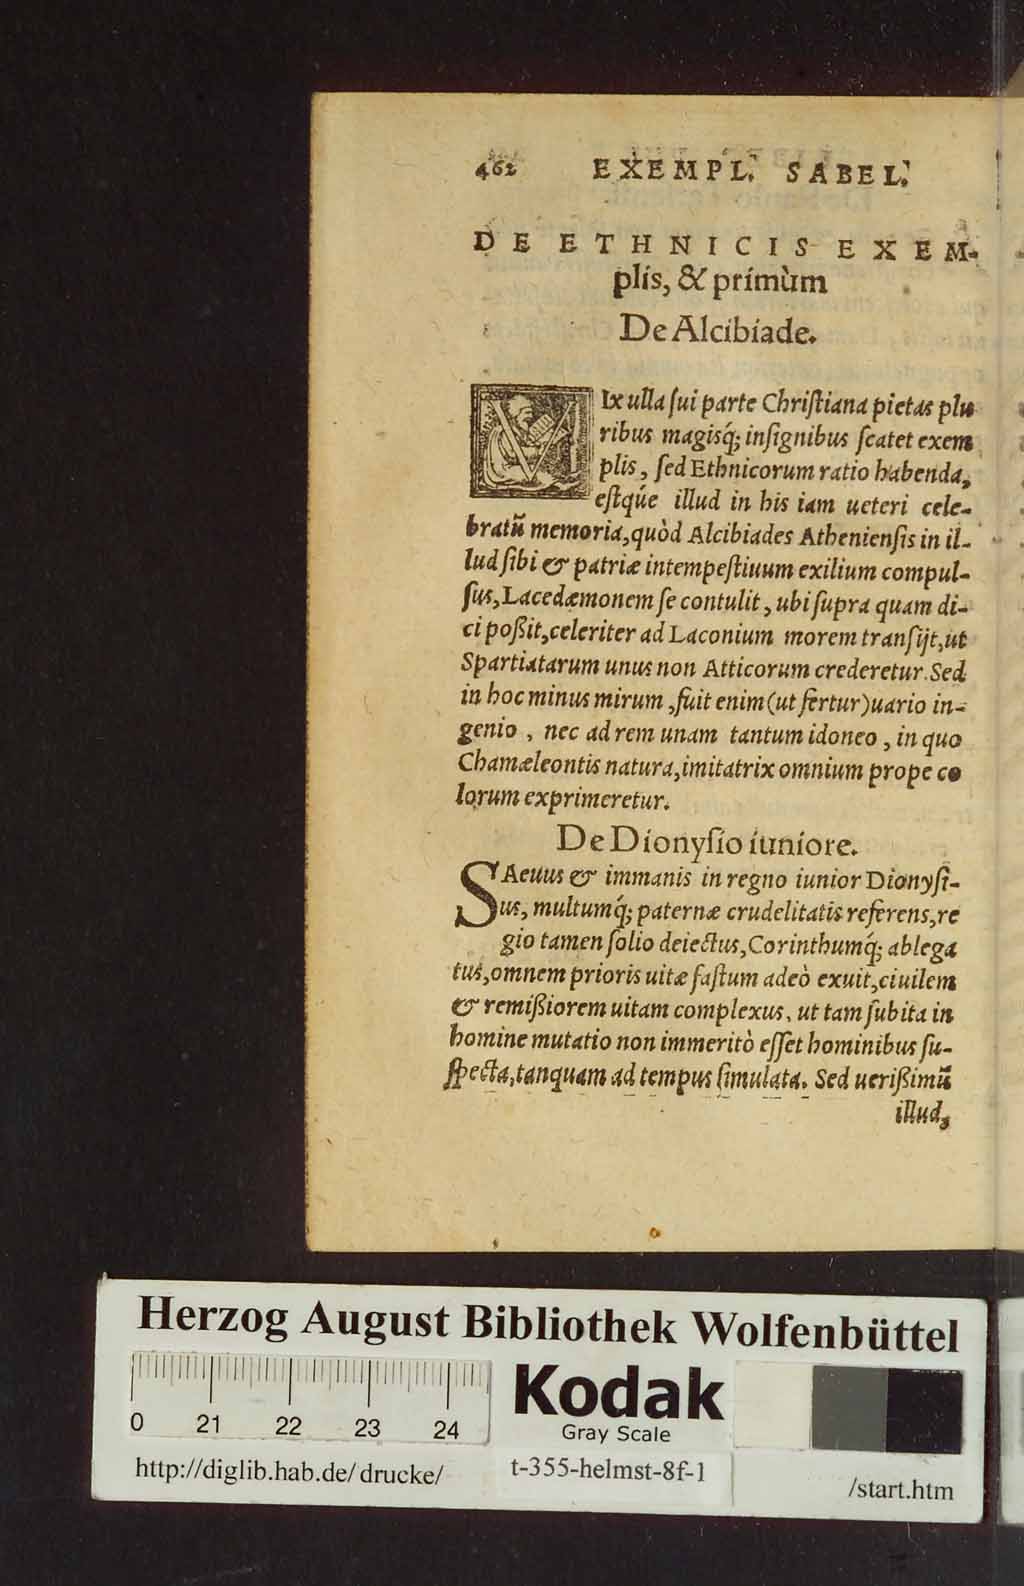 462 EXEMPL. SABEL.
DE ETHNICIS EXEM-
plis, & primùm
De Alcibiade.
VIx ulla ſui parte Chriſtiana pietas plu
ribus magisq́; inſignibus ſcatet exem
plis, ſed Ethnicorum ratio habenda,
eſtqúe illud in his iam ueteri cele-
bratū memoria, quòd Alcibiades Athenienſis in il-
lud ſibi & patriæ intempeſtiuum exilium compul-
ſus, Lacedæmonem ſe contulit, ubi ſupra quam di-
ci poßit, celeriter ad Laconium morem tranſijt, ut
Spartiatarum unus non Atticorum crederetur. Sed
in hoc minus mirum, fuit enim (ut fertur) uario in-
genio, nec ad rem unam tantum idoneo, in quo
Chamæleontis natura, imitatrix omnium prope co
lorum exprimeretur.
De Dionyſio iuniore.
SAeuus & immanis in regno iunior Dionyſi-
us, multumq́; paternæ crudelitatis referens, re
gio tamen ſolio deiectus, Corinthumq́; ablega
tus, omnem prioris uitæ faſtum adeò exuit, ciuilem
& remißiorem uitam complexus, ut tam ſubita in
homine mutatio non immeritò eſſet hominibus ſu-
ſpecta, tanquam ad tempus ſimulata. Sed uerißimū
illud,
Herzog August Bibliothek Wolfenbüttel
0 21 22 23 24
Kodak
Gray Scale
http://diglib.hab.de/drucke/ t-355-helmst-8f-1 /start.htm